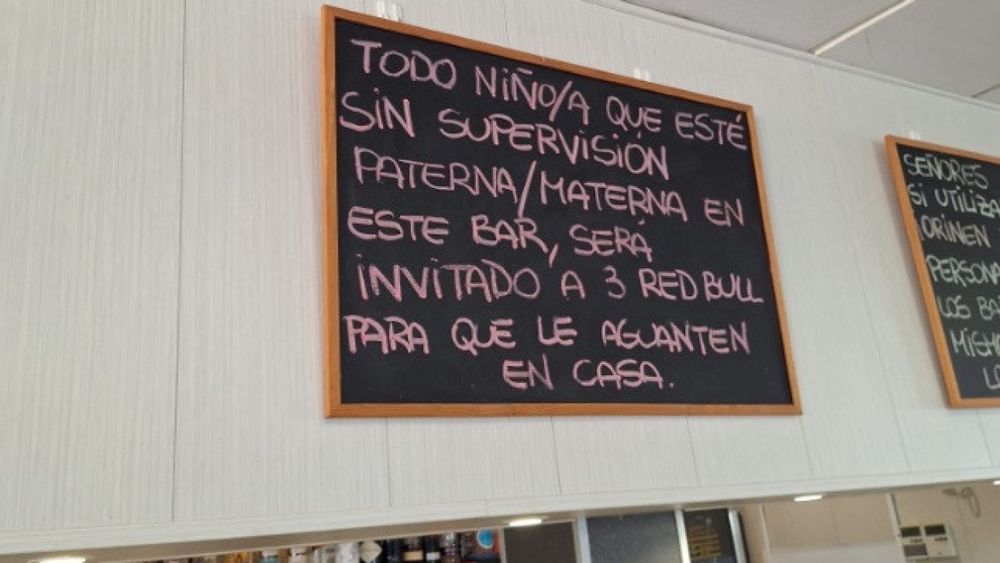 TODO NIÑO/A QUE ESTÉ
SIN SUPERVISIÓN
PATERNA/MATERNA EN
ESTE BAR, SERÁ
INVITADO A 3 RED BULL
PARA QUE LE AGUANTEN
EN CASA.
SEÑORES
SI
ORINEN
LOS